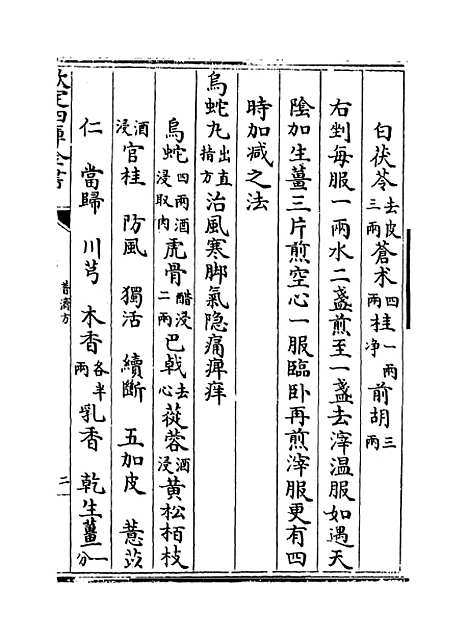 白茯苓去皮三兩蒼术四兩桂一兩净前胡三兩
右剉每服一兩水二盞煎至一盞去滓温服如遇天
陰加生薑三片煎空心一服臨卧再煎滓服更有四
時加减之法
烏蛇丸出直指方治風寒脚氣隐痛痺痒
烏蛇四兩酒浸取肉虎骨醋浸二兩巴戟去心蓯蓉酒浸黄松栢枝
酒浸官桂 防風 獨活 續斷 五加皮 薏苡
仁 當歸 川芎 木香各半兩乳香 乾生薑一分
欽定四庫全書
普濟方
二